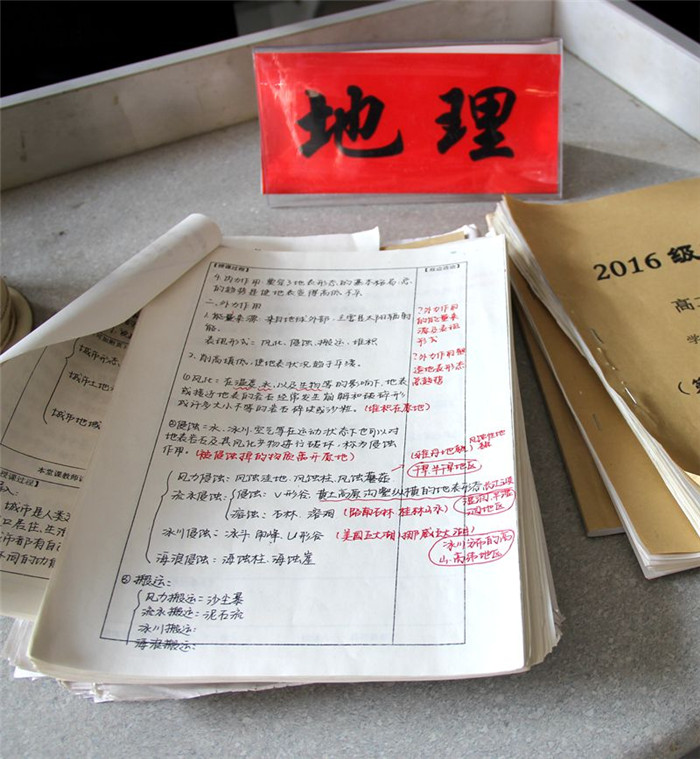 地理
2016级
高
学
【授课过程】
4.内力作用：奠定了地表形态的基本格局，总
的趋势是使地表变得高低不平
二、外力作用
1.能量来源：来自地球外部，主要是太阳辐射
能。
表现形式：风化、侵蚀、搬运、堆积
2.削高填低，使地表状况趋于平缓。
①风化：在温度、水、以及生物等的影响下，地表
或接近地表的岩石经常发生崩解和破碎，形
成许多大小不等的岩石碎块或砂粒。（堆积在原地）
②侵蚀：水、冰川、空气等在运动状态下也可以对
地表岩石及其风化产物进行破坏，称为侵蚀
作用。（被侵蚀掉的物质离开原地）
风力侵蚀：风蚀洼地、风蚀柱、风蚀蘑菇
流水侵蚀：
侵蚀：V形谷 黄土高原沟壑纵横的地表形态
溶蚀：石林、溶洞（路南石林 桂林山水）
冰川侵蚀：冰斗、角峰、U形谷（美国五大湖、挪威峡湾）
海浪侵蚀：海蚀柱、海蚀崖
③搬运：
风力搬运：沙尘暴
流水搬运：泥石流
冰川搬运：
海浪搬运：
?外力作用
的能量来
源及表现
形式
?外力作用的
干旱半干旱地区
湿润、半湿
润地区
冰川分布的高
山、高纬地区
城市形态
城市土地
城市地域
【授课过程】
城市是人类